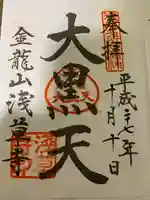 奉拝
平成二十七年
十月十日
大黒天
金龍山
浅草寺